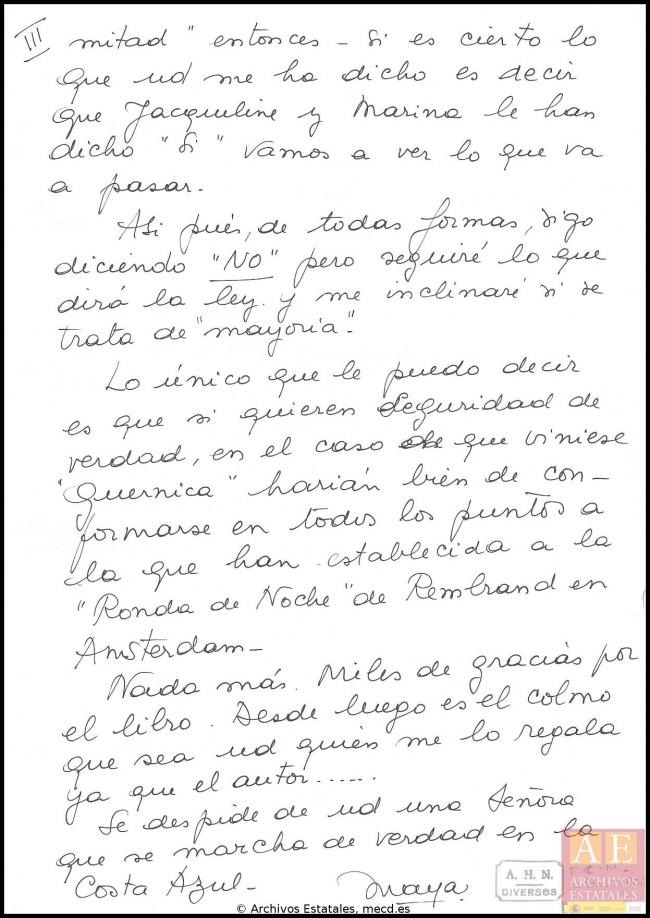 III
mitad" entonces - Si es cierto lo
que ud me ha dicho es decir
que Jacqueline y Marina le han
dicho "Si" vamos a ver lo que va
a pasar.
Asi pués, de todas formas, sigo
diciendo "NO" pero seguiré lo que
dirá la ley. y me inclinaré si se
trata de "mayoria".
Lo único que le puedo decir
es que si quieren seguridad de
verdad, en el caso de que viniese
"Guernica" harián bién de con-
formarse en todos los puntos a
la que han establecida a la
"Ronda de Noche" de Rembrand en
Amsterdam-
Nada más. Miles de gracias por
el libro. Desde luego es el colmo
que sea ud quién me lo regala
ya que el autor......
Se despide de ud una Señora
que se marcha de verdad en la
Costa Azul-
Maya
A. H. N.
DIVERSOS
AE
ARCHIVOS
ESTATALES
© Archivos Estatales, mecd.es